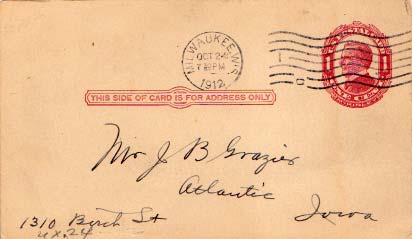 MILWAUKEE, WIS.
OCT 24
7 PM
1912
1
THIS SIDE OF CARD IS FOR ADDRESS ONLY
Mr J B Grazier
Atlantic
Iowa
1310 Birch St